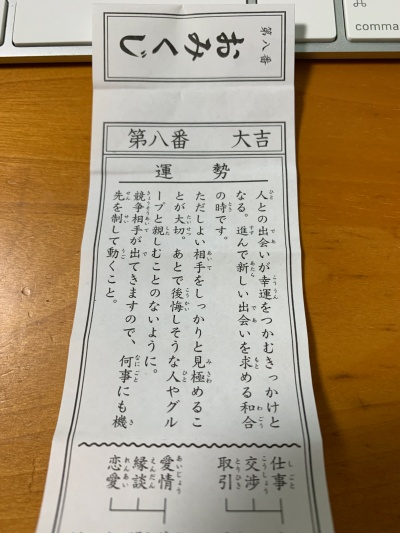 第八番
おみくじ
第八番 大吉
運勢
人との出会いが幸運をつかむきっかけと
なる。進んで新しい出会いを求める和合
の時です。
ただしよい相手をしっかりと見極めるこ
とが大切。あとで後悔しそうな人やグル
ープと親しむことのないように。
競争相手が出てきますので、何事にも機
先を制して動くこと。
仕事
交渉
取引
愛情
縁談
恋愛
⌘
comma